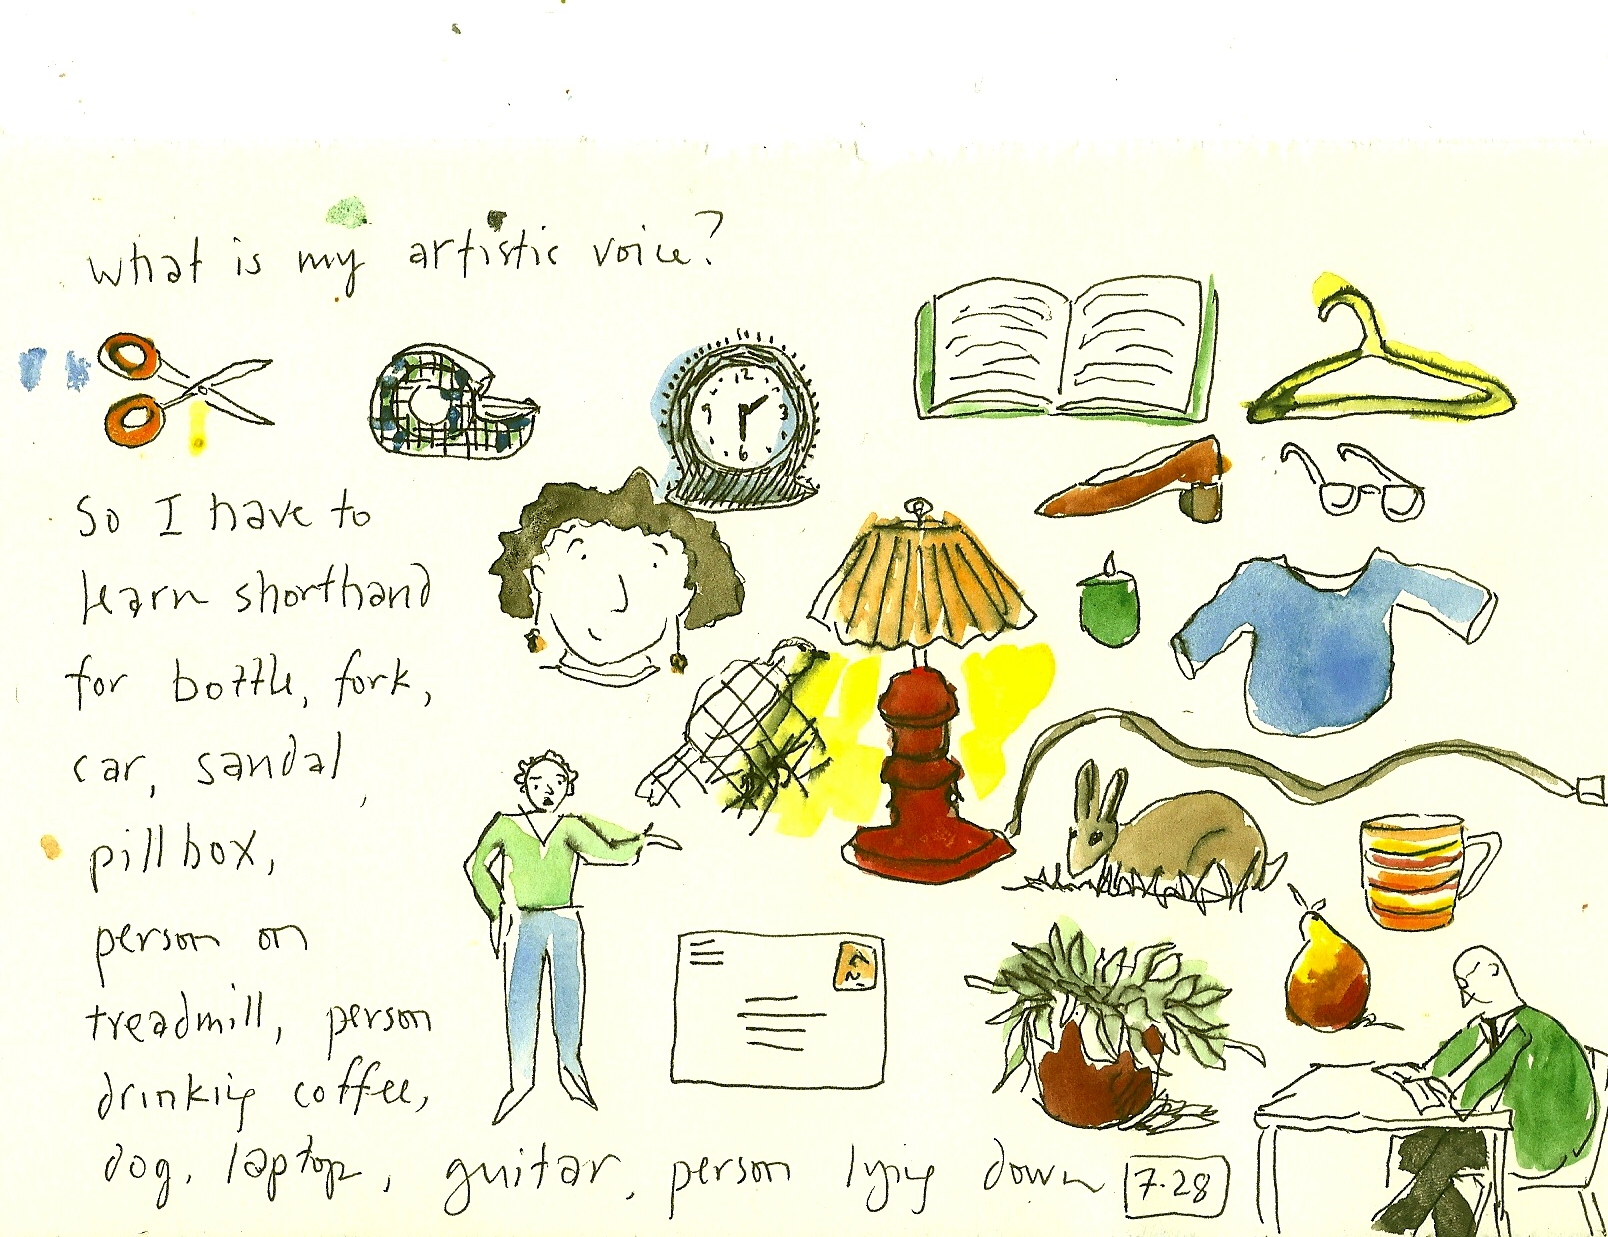 what is my artistic voice?
12
9
3
6
So I have to
learn shorthand
for bottle, fork,
car, sandal,
pillbox,
person on
treadmill, person
drinking coffee,
dog, laptop, guitar, person lying down 7.28